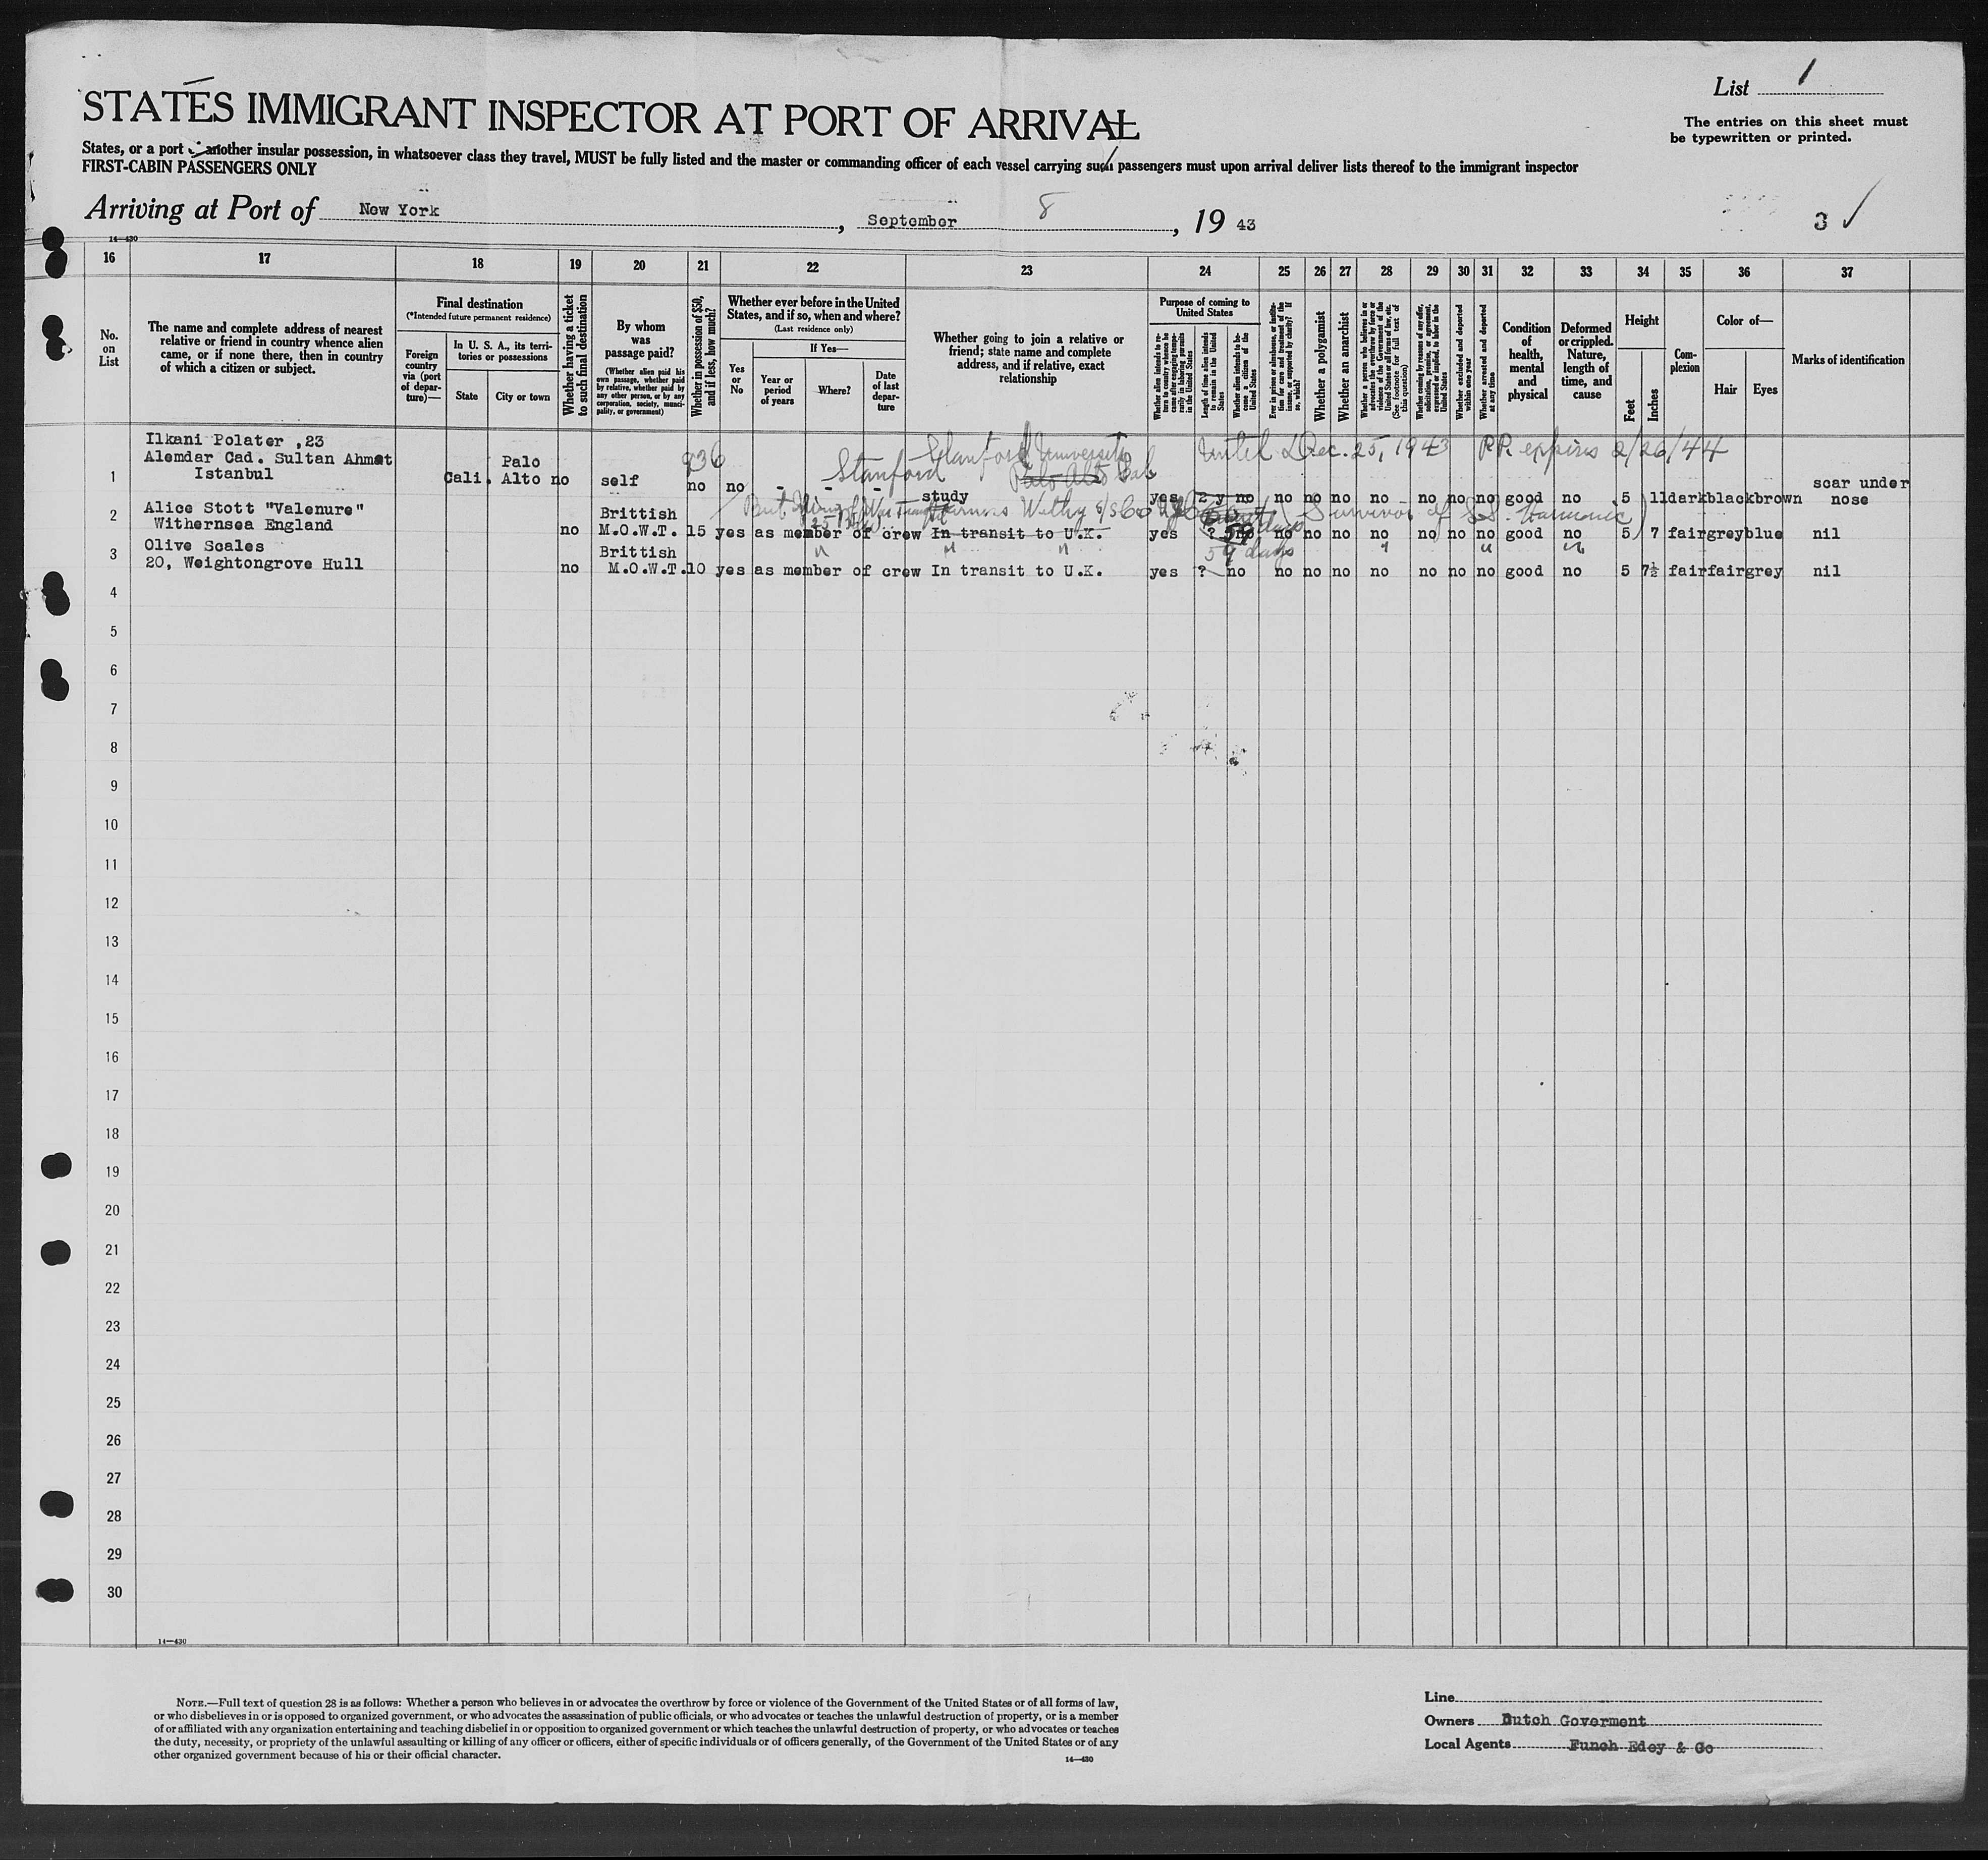 List 1
The entries on this sheet must
be typewritten or printed.
STATES IMMIGRANT INSPECTOR AT PORT OF ARRIVAL
States, or a port another insular possession, in whatsoever class they travel, MUST be fully listed and the master or commanding officer of each vessel carrying such passengers must upon arrival deliver lists thereof to the immigrant inspector
FIRST-CABIN PASSENGERS ONLY
Arriving at Port of New York, September 8, 19 43
3
14—430
16 17 18 19 20 21 22 23 24 25 26 27 28 29 30 31 32 33 34 35 36 37
No.
on
List
The name and complete address of nearest
relative or friend in country whence alien
came, or if none there, then in country
of which a citizen or subject.
Final destination
(*Intended future permanent residence)
Foreign
country
via (port
of depar-
ture)—
In U. S. A., its terri-
tories or possessions
State
City or town
Whether having a ticket
to such final destination
By whom
was
passage paid?
(Whether alien paid his
own passage, whether paid
by relative, whether paid by
any other person, or by any
corporation, society, munici-
pality, or government)
Whether in possession of $50,
and if less, how much?
Whether ever before in the United
States, and if so, when and where?
(Last residence only)
Yes
or
No
If Yes—
Year or
period
of years
Where?
Date
of last
depar-
ture
Whether going to join a relative or
friend; state name and complete
address, and if relative, exact
relationship
Purpose of coming to
United States
Whether alien intends to re-
turn to country whence he
came after engaging tempo-
rarily in laboring pursuits
in the United States
Length of time alien intends
to remain in the United
States
Whether alien intends to be-
come a citizen of the
United States
Ever in prison or almshouse, or institu-
tion for care and treatment of the
insane, or supported by charity? If
so, which?
Whether a polygamist
Whether an anarchist
Whether a person who believes in or
advocates the overthrow by force or
violence of the Government of the
United States or all forms of law, etc.
(See footnote for full text of
this question)
Whether coming by reason of any offer,
solicitation, promise, or agreement,
expressed or implied, to labor in the
United States
Whether excluded and deported
within one year
Whether arrested and deported
at any time
Condition
of
health,
mental
and
physical
Deformed
or crippled.
Nature,
length of
time, and
cause
Height
Feet
Inches
Com-
plexion
Color of—
Hair
Eyes
Marks of identification
Ilkani Polater ,23
Alemdar Cad. Sultan Ahmet
Istanbul
1 Cali. Palo
Alto no self 936
no no - - - Stanford Stanford University
Palo Alto Cal
study
Until Dec. 25, 1943 PP. expires 2/26/44
yes 2 y no no no no no no no no good no 5 11 dark black brown scar under
nose
2 Alice Stott "Valenure"
Withernsea England
no Brittish
M.O.W.T. 15 yes as member of crew In transit to U.K. yes ? no no no no no no no no good no 5 7 fair grey blue nil
59 days
(Survivor of S.S. Harmonic)
3 Olive Scales
20, Weightongrove Hull
no Brittish
M.O.W.T. 10 yes as member of crew In transit to U.K. yes ? no no no no no no no no good no 5 7½ fair fair grey nil
59 days
4
5
6
7
8
9
10
11
12
13
14
15
16
17
18
19
20
21
22
23
24
25
26
27
28
29
30
14—430
NOTE.—Full text of question 28 is as follows: Whether a person who believes in or advocates the overthrow by force or violence of the Government of the United States or of all forms of law,
or who disbelieves in or is opposed to organized government, or who advocates the assassination of public officials, or who advocates or teaches the unlawful destruction of property, or is a member
of or affiliated with any organization entertaining and teaching disbelief in or opposition to organized government or which teaches the unlawful destruction of property, or who advocates or teaches
the duty, necessity, or propriety of the unlawful assaulting or killing of any officer or officers, either of specific individuals or of officers generally, of the Government of the United States or of any
other organized government because of his or their official character.
14—430
Line
Owners Dutch Goverment
Local Agents Funch Edey & Co